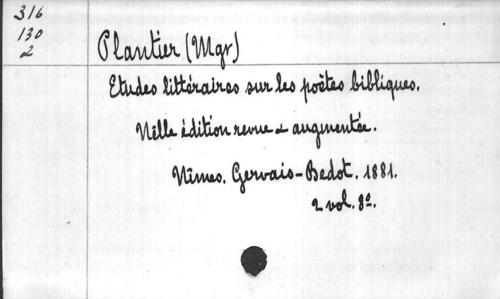 316
130
2
Plantier (Mgr)
Etudes littéraires sur les poètes bibliques.
Nelle édition revue & augmentée.
Nîmes. Gervais-Bedot. 1881.
2 vol. 8º.